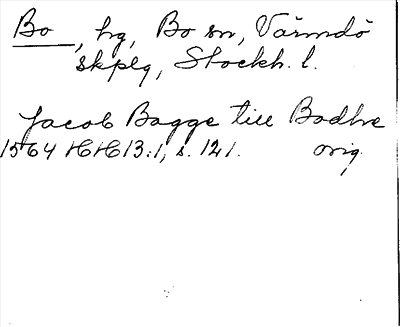 Bo, hg, Bo sn, Värmdö
skplg, Stockh. l.
Jacob Bagge till Bodhe
1564 HH 13:1, s. 121. orig.